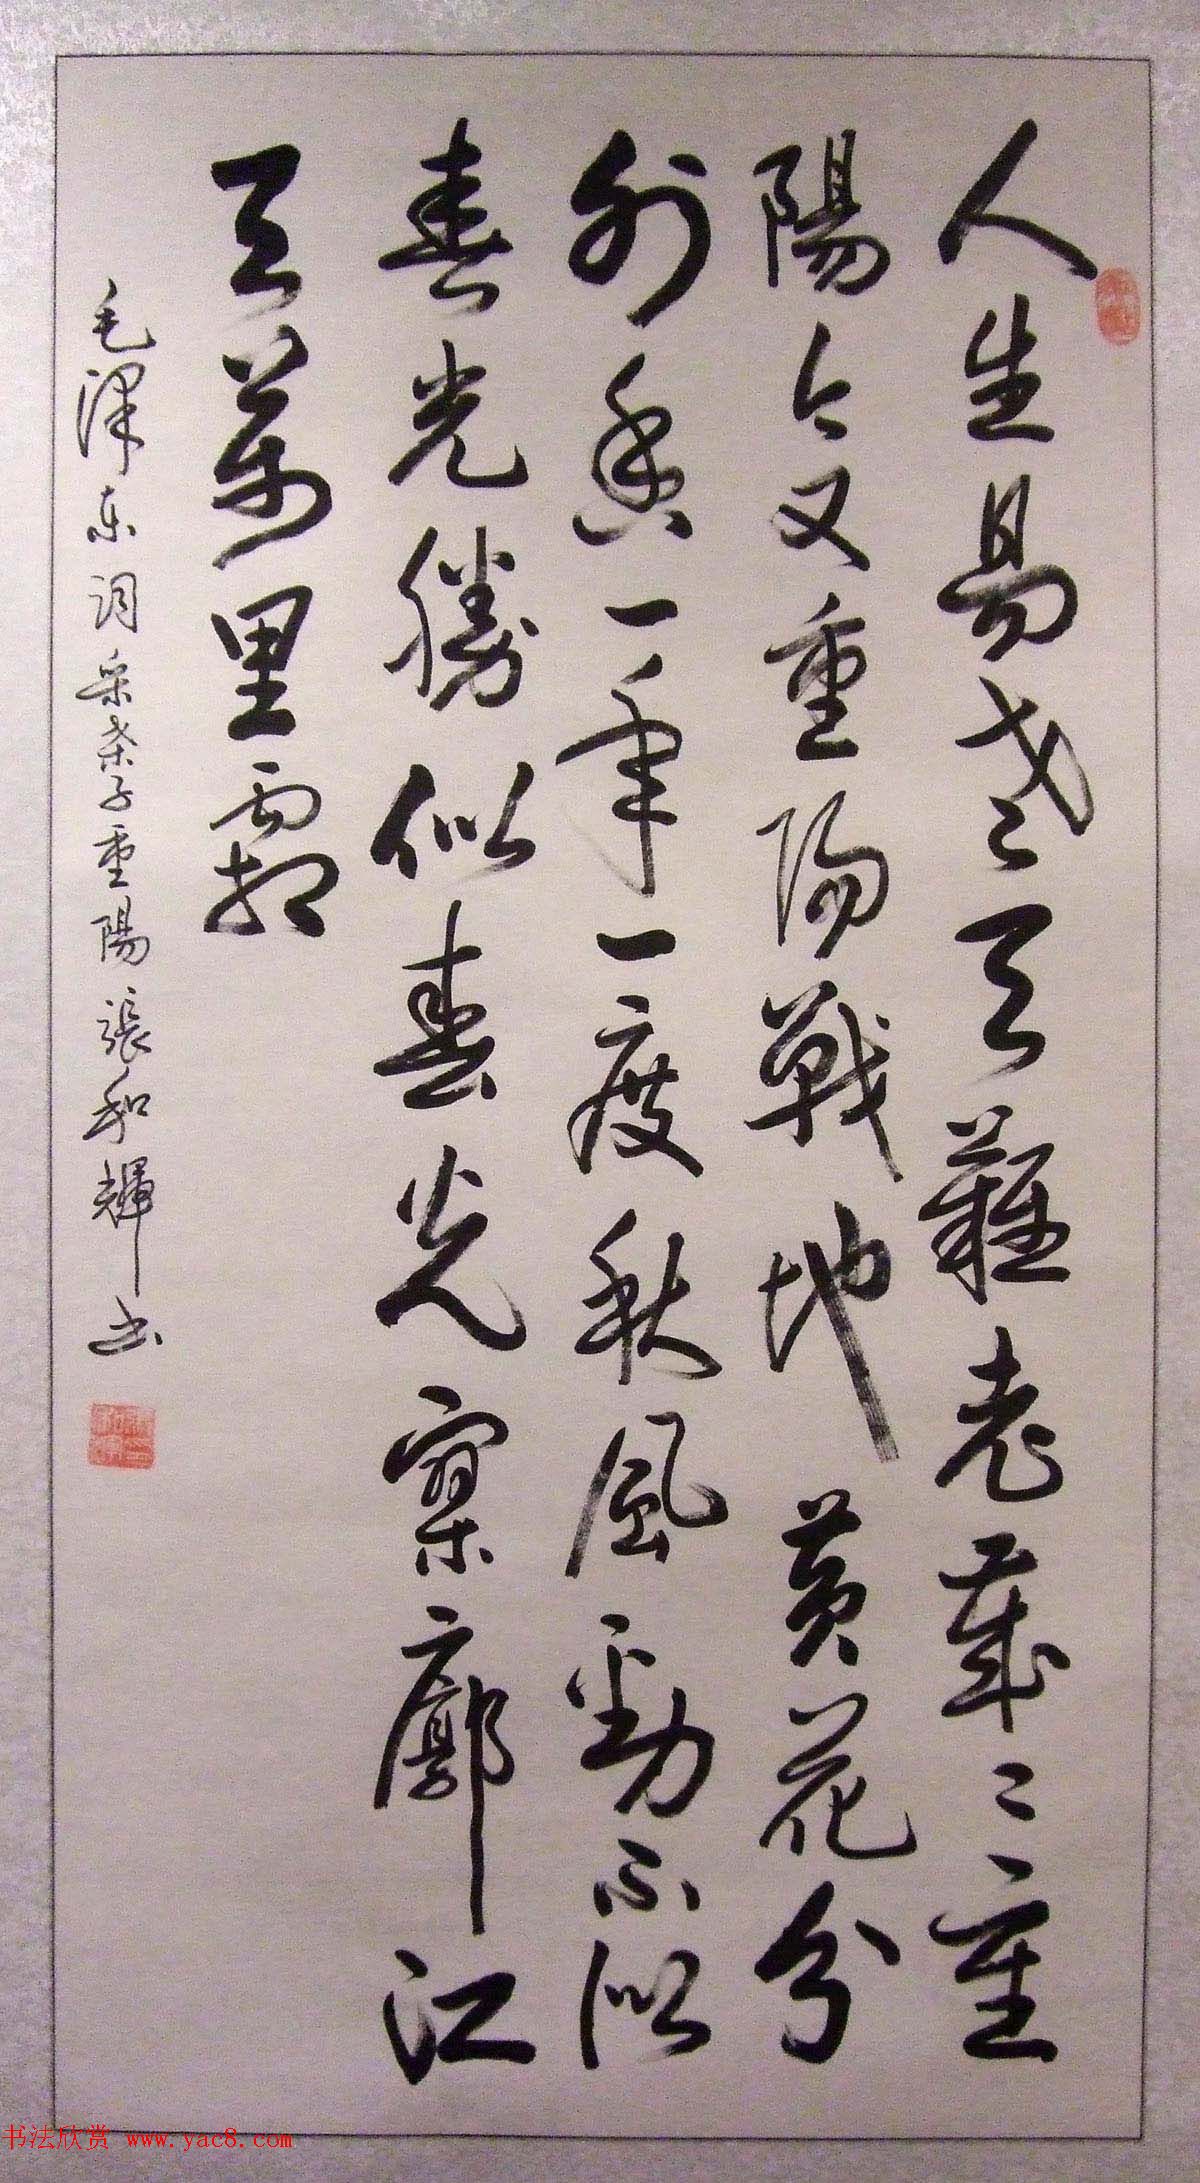 人生易老天難老歲々重
陽今又重陽戰地黃花分
外香一年一度秋風勁不似
春光勝似春光寥廓江
天萬里霜
毛澤东词采桑子重陽張和輝书
书法欣赏 www.yac8.com